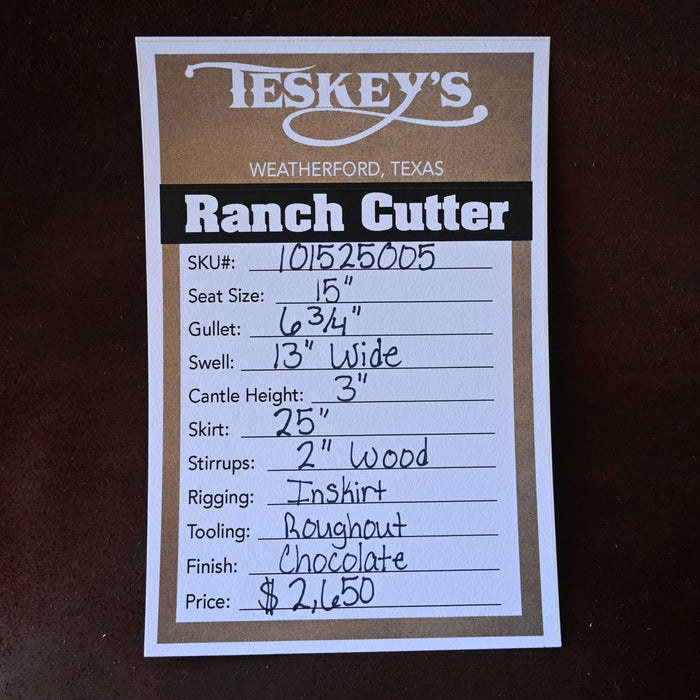 TESKEY'S
WEATHERFORD, TEXAS
Ranch Cutter
SKU#: 101525005
Seat Size: 15"
Gullet: 6 3/4"
Swell: 13" Wide
Cantle Height: 3"
Skirt: 25"
Stirrups: 2" Wood
Rigging: Inskirt
Tooling: Roughout
Finish: Chocolate
Price: $ 2,650